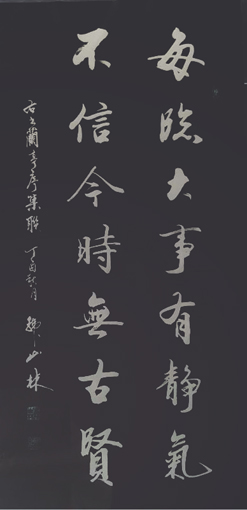 每臨大事有靜氣
不信今時無古賢
右文蘭亭序集聯 丁酉秋月 鄉山林